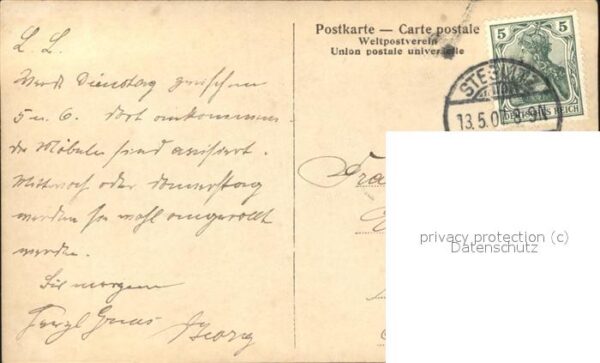 L. L.
Werde Dienstag zwischen
5 u. 6. dort ankommen
die Möbeln sind avisiert.
Mittwoch oder Donnerstag
werden sie wohl angerollt
werden.
Bis morgen
Herzl Gruss Georg
Postkarte — Carte postale
Weltpostverein
Union postale universelle
5 5
DEUTSCHES REICH
13.5.0 8-9N
privacy protection (c)
Datenschutz